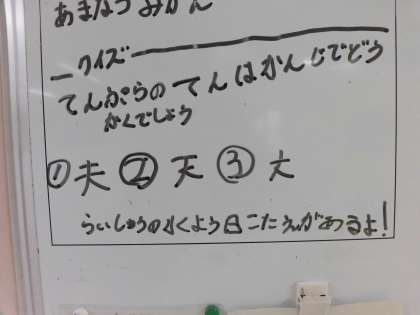 あまなつみかん
クイズ
てんぷらのてんはかんじでどう
かくでしょう
①夫②天③大
らいしゅうの水よう日こたえがあるよ!